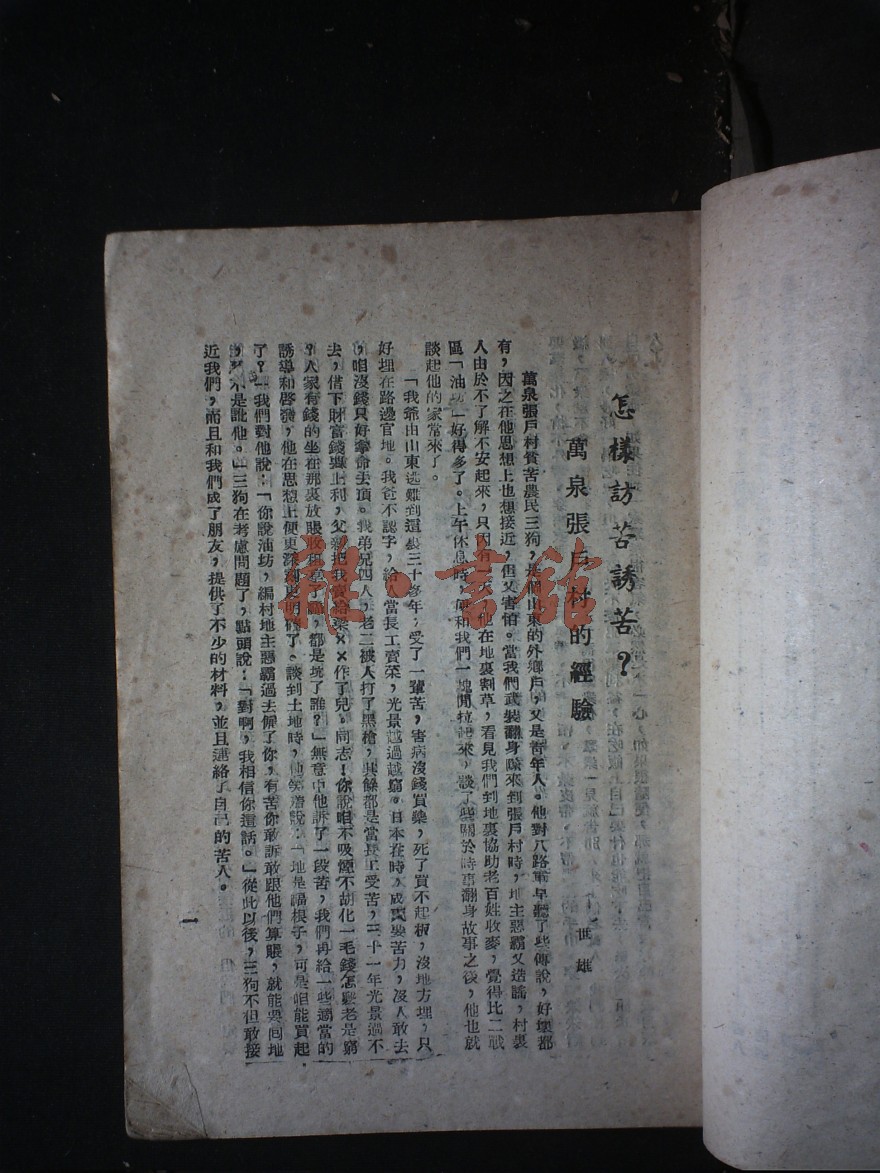 怎樣訪苦誘苦？
萬泉張戶村的經驗
世雄
萬泉張戶村貧苦農民三狗，是個山東的外鄉戶，又是青年人。他對八路軍早聽了些傳說，好壞都
有，因之在他思想上也想接近，但又害怕。當我們武裝翻身隊來到張戶村時，地主惡霸又造謠，村裏
人由於不了解不安起來，只因有一天，他在地裏割草，看見我們到地裏協助老百姓收麥，覺得比二戰
區「油坊」好得多了。上午休息時，便和我們一塊閒拉起來，談了些關於時事翻身故事之後，他也就
談起他的家常來了。
「我爺由山東逃難到這裏三十多年，受了一輩苦，害病沒錢買藥，死了買不起板，沒地方埋，只
好埋在路邊官地。我爸不認字，給 當長工賣菜，光景越過越窮。日本在時，成天要苦力，沒人敢去
，咱沒錢只好拿命去頂。我弟兄四人，老二被人打了黑槍，其餘都是當長工受苦，三十一年光景過不
去，借下財富錢攤上利，父親把我賣給梁××作了兒。同志！你說咱不吸煙不胡化一毛錢怎麼老是窮
？人家有錢的坐在那裏放賬收租 ，都是坑了誰？」無意中他訴了一段苦，我們再給一些適當的
誘導和啓發，他在思想上便更深刻更明確了。談到土地時，他笑着說：「地是福根子，可是咱能買起
了？」我們對他說：「你說油坊，編村地主惡霸過去僱了你，有苦你敢訴敢跟他們算賬，就能要回地
，又不是訛他。」三狗在考慮問題了，點頭說：「對啊，我相信你這話。」從此以後，三狗不但敢接
近我們，而且和我們成了朋友，提供了不少的材料，並且連絡了自己的苦人。
一
雜·書館